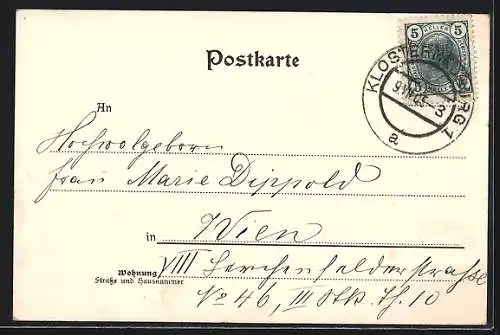 5 HELLER 5
Postkarte
KLOSTERNEUBURG 1
a
An
Hochwolgeborn
frau Marie Dippold
in Wien
Wohnung
Straße und Hausnummer
VIII Lerchenfelderstraße
No 46, III Stk. Th. 10